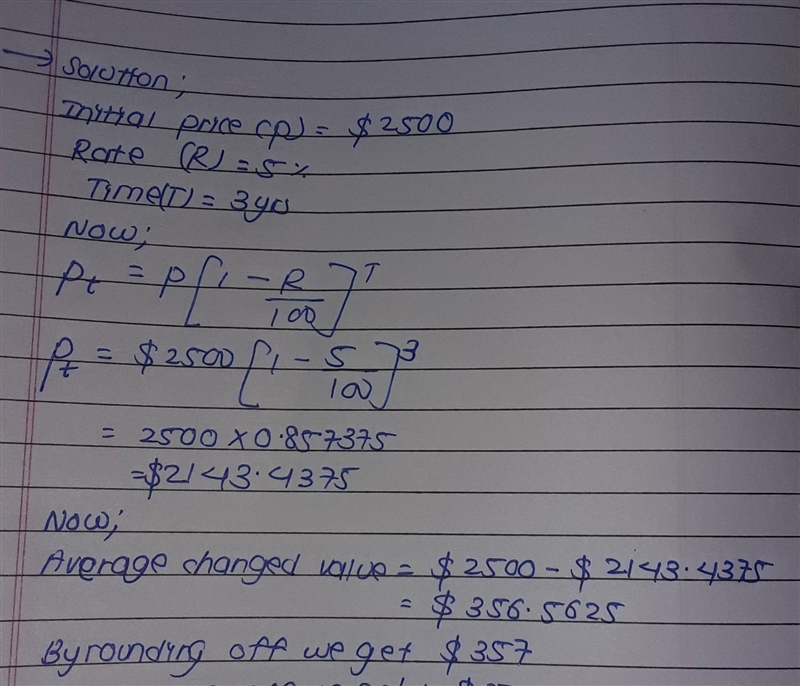 → Solution;
Initial price (p) = $2500
Rate (R) = 5%
Time(T) = 3yrs
Now;
Pt = P[1 - R/100]^T
Pt = $2500[1 - 5/100]^3
= 2500 × 0.857375
= $2143.4375
Now;
Average changed value = $2500 - $2143.4375
= $356.5625
By rounding off we get $357